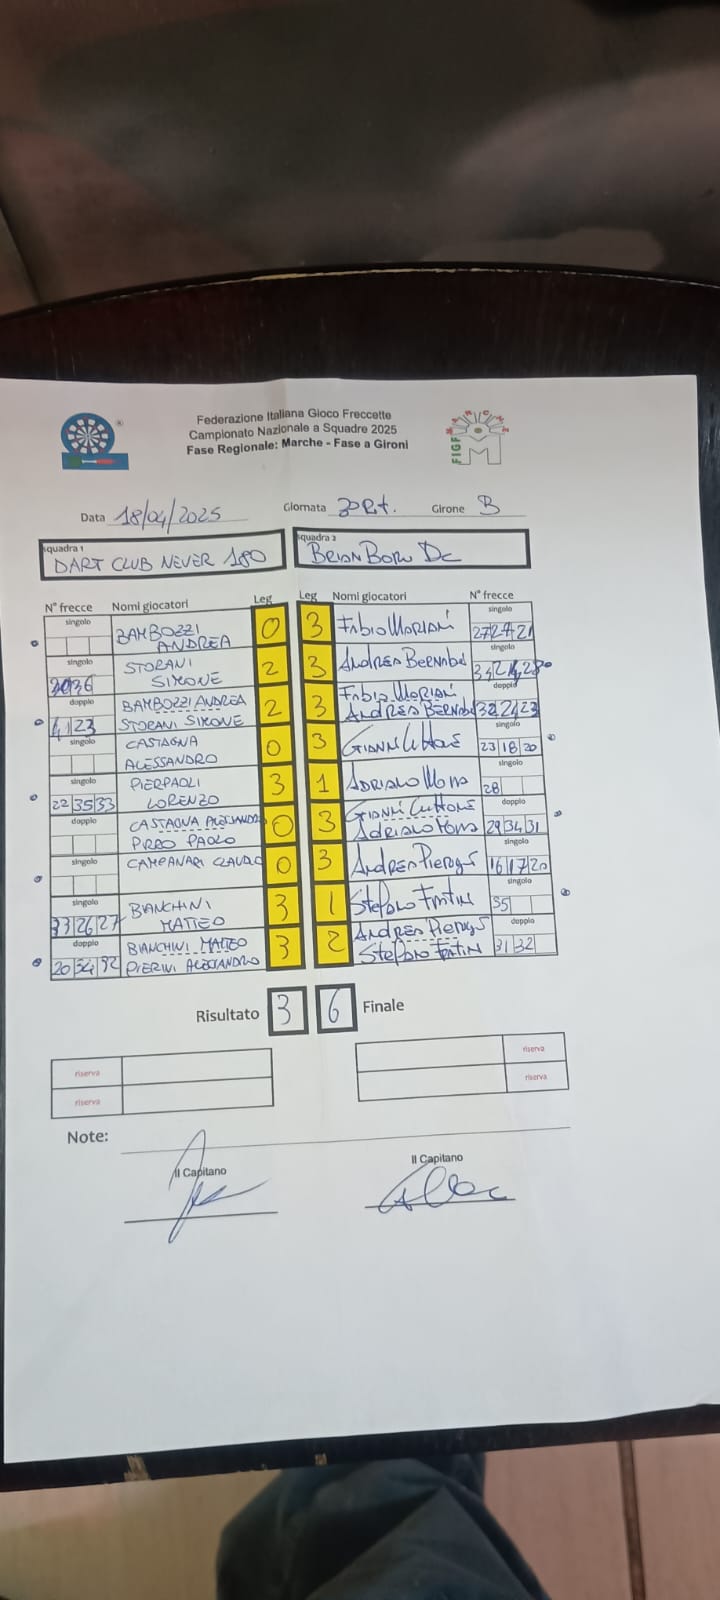 Federazione Italiana Gioco Freccette
Campionato Nazionale a Squadre 2025
Fase Regionale: Marche - Fase a Gironi
FIGF
M
Data 18/04/2025 Giornata Girone B
squadra 1 squadra 2
DART CLUB NEVER 180 BRIAN BORU DC
N° frecce Nomi giocatori Leg Leg Nomi giocatori N° frecce
singolo singolo
BAMBOZZI ANDREA 0 3 FABIO MORIANI 27 24 21
singolo singolo
30 36 STORANI SIMONE 2 3 ANDREA BERNABEI
doppio doppio
41 23 BAMBOZZI ANDREA 2 3 FABIO MORIANI
STORANI SIMONE ANDREA BERNABEI
singolo singolo
CASTAGNA ALESSANDRO 0 3 23 18 20
singolo singolo
22 35 33 PIERPAOLI LORENZO 3 1 ADRIANO 28
doppio doppio
CASTAGNA ALESSANDRO 0 3 29 34 31
PIRRO PAOLO ADRIANO
singolo singolo
CAMPANARI CLAUDIO 0 3 ANDREA 16 17 20
singolo singolo
33 26 27 BIANCHINI MATTEO 3 1 STEFANO 35
doppio doppio
20 34 BIANCHINI MATTEO 3 2 ANDREA 31 32
PIERINI ALESSANDRO STEFANO
Risultato 3 6 Finale
riserva riserva
riserva riserva
Note:
Il Capitano Il Capitano